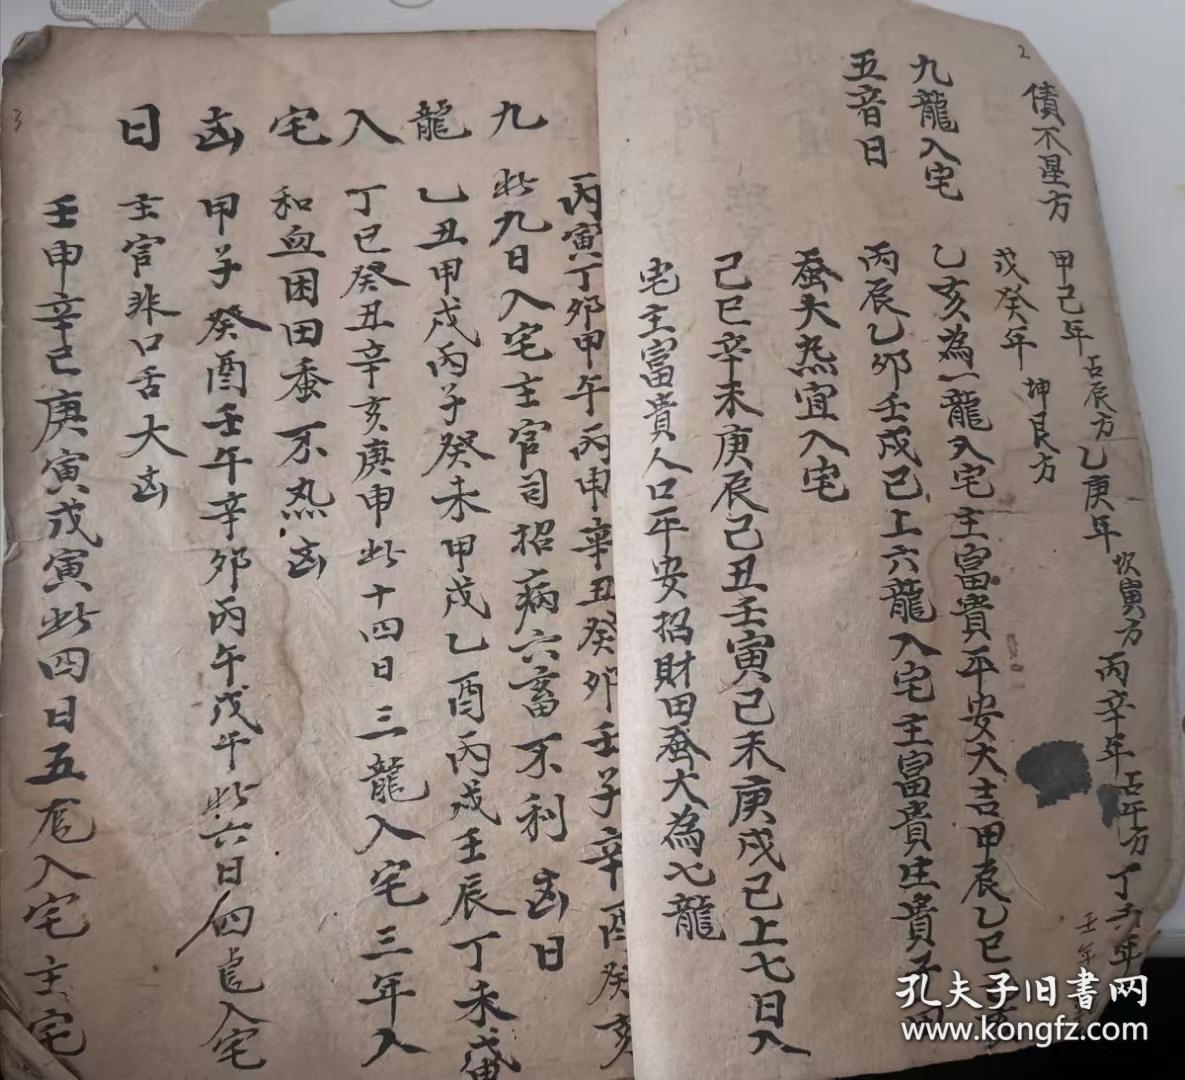 2
債不星方
甲己年占辰方乙庚年坎寅方丙辛年占午方丁
戊癸年坤艮方
壬年
九龍入宅
五音日
乙亥為一龍入宅主富貴平安大吉甲辰乙巳
丙辰乙卯壬戌已上六龍入宅主富貴庄貴子田
蚕大熟宜入宅
己巳辛未庚辰己丑壬寅己未庚戌已上七日入
宅主富貴人口平安招財田蚕大為七龍
3
九龍入宅凶日
丙寅丁卯甲午丙申辛丑癸卯壬子辛酉癸亥
此九日入宅主官司招病六畜不利凶日
乙丑甲戌丙子癸未甲戌乙酉丙戌壬辰丁未
丁巳癸丑辛亥庚申此十四日三龍入宅三年入
和血困田蚕不熟凶
甲子癸酉壬午辛卯丙午戊午此六日四龍入宅
主官非口舌大凶
壬申辛巳庚寅戊寅此四日五龙入宅主宅
孔夫子旧書网
www.kongfz.com